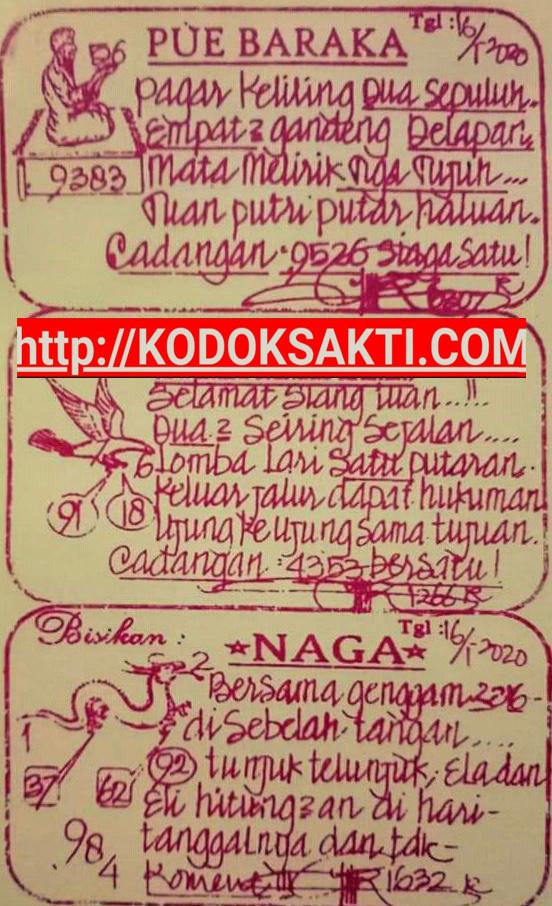 PUE BARAKA
Tgl : 16/1-2020
6
Pagar Keliling Dua Sepuluh..
Empat2 gandeng Delapan..
9383
Mata Melirik Tiga Tujuh...
Tuan putri putar haluan.
Cadangan : 9526 Siaga Satu!
http://KODOKSAKTI.COM
Selamat Siang tuan....!!
Dua.2 Seiring Sejalan....
6
Lomba Lari Satu putaran.
91 18
Keluar jalur dapat hukuman
Ujung ke ujung sama tujuan.
Cadangan : 4353 bersatu!
1266
Bisikan :
NAGA
Tgl : 16/1-2020
2
Bersama genggam
di Sebelah tangan....
1
37 62
92 tunjuk telunjuk, Ela dan
Eli hitung2an di hari-
984
tanggalnya dan tak-
Koment
1632